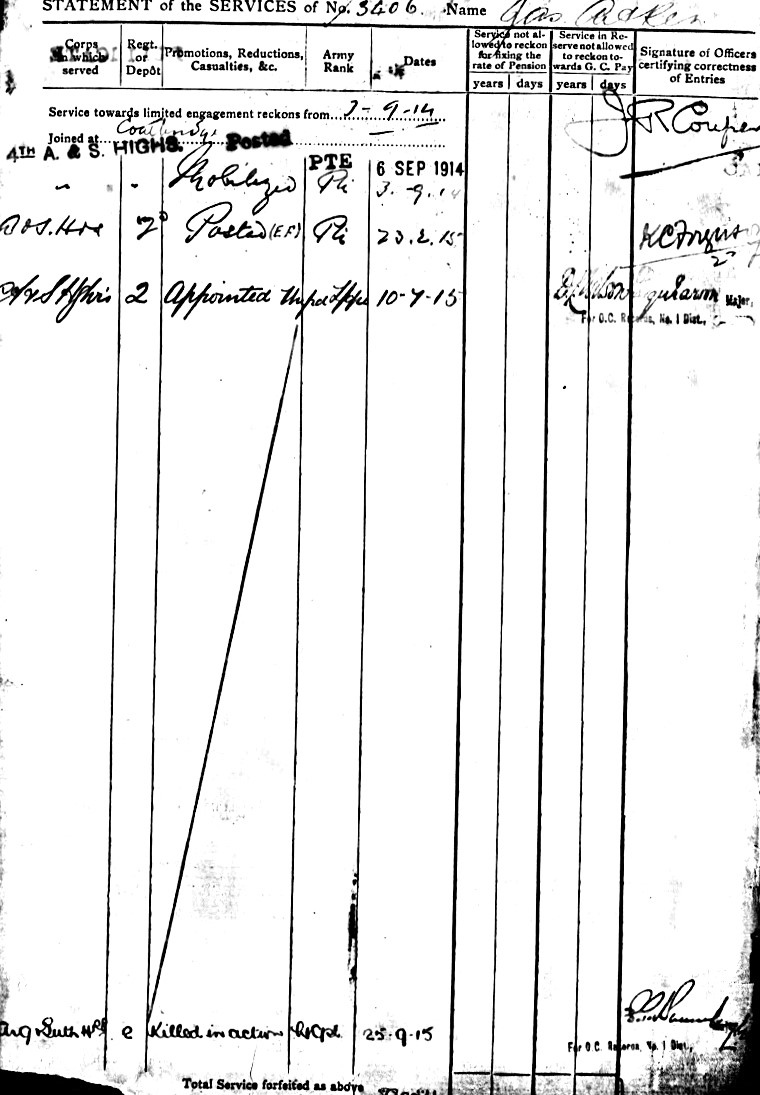 STATEMENT of the SERVICES of No. 3406. Name Jas
Corps in which served
Regt. or Depôt
Promotions, Reductions, Casualties, &c.
Army Rank
Dates
Service not allowed to reckon for fixing the rate of Pension
years days
Service in Reserve not allowed to reckon towards G. C. Pay
years days
Signature of Officers certifying correctness of Entries
Service towards limited engagement reckons from 3-9-14
Joined at Coatbridge
J R Couper
4TH A. & S. HIGHS. Posted PTE 6 SEP 1914
" " Mobilized Pte 3.9.14
Posted (E.F) Pte 23.2.15
2 Appointed 10-7-15
Major,
For O.C. Records, No. 1 Dist.,
Killed in action L/Cpl 25-9-15
For O.C. Records, No. 1 Dist.,
Total Service forfeited as above